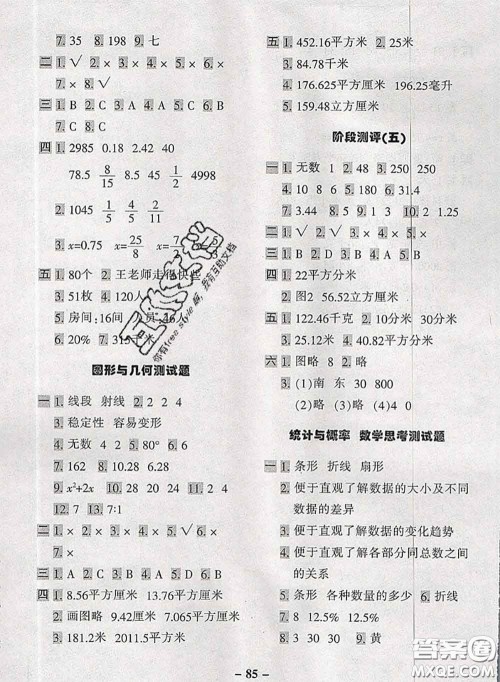 7. 35 8. 198 9. 七
二 1. √ 2. × 3. × 4. × 5. × 6. ×
7. × 8. √
三 1. B 2. C 3. A 4. C 5. A 6. B
7. C 8. C
四 1. 2985 0.18 2.42 40
78.5 8/15 8.5 45/4 4998
2. 1045 1/8
3. x=0.75 x=25/8
五 1. 80个 2. 王老师走得快些
3. 51枚 4. 120人
5. 房间:16间
6. 20% 7. 315
图形与几何测试题
一 1. 线段 射线 2. 2 2 4
3. 稳定性 容易变形
4. 无数 4 2 5. 80° 6. 6 2
7. 162 8. 10.28 6.28
9. x²+2x 10. 4 11. 24 12 4
12. 7 13. 7∶1
二 1. × 2. × 3. × 4. √ 5. √ 6. ×
7. ×
三 1. A 2. C 3. B 4. A 5. D 6. D
四 1. 8.56平方厘米 13.76平方厘米
2. 画图略 9.42厘米 7.065平方厘米
3. 181.2米 2011.5平方米
五 1. 452.16平方米 2. 25米
3. 84.78千米
4. 176.625平方厘米 196.25毫升
5. 159.48立方厘米
阶段测评(五)
一 1. 无数 1 2. 48 3. 250 250
4. 10 8 6. 3 186 5. 31.4
6. 9 7. 8 8. 3.14 9. 10 10. 4
二 1. √ 2. √ 3. × 4. × 5. ×
三 1. B 2. D 3. C 4. A 5. B
四 1. 22平方分米
2. 图2 56.52立方厘米
五 1. 122.46千克 2. 10分米 30分米
3. 25.12米 4. 40.82平方分米
六 1. 图略 2. 图略 8
3. (1)南 东 800
(2)略 (3)略 (4)略
统计与概率 数学思考测试题
一 1. 条形 折线 扇形
2. 便于直观了解数据的大小及不同
数据的差异
3. 便于直观了解数据的变化趋势
4. 便于直观了解各部分同总数之间
的关系
5. 条形 各种数量的多少 6. 折线
7. 8 12.5% 6.5%
8. 3 30 30 9. 黄
- 85 -
答案圈
MXQE.COM